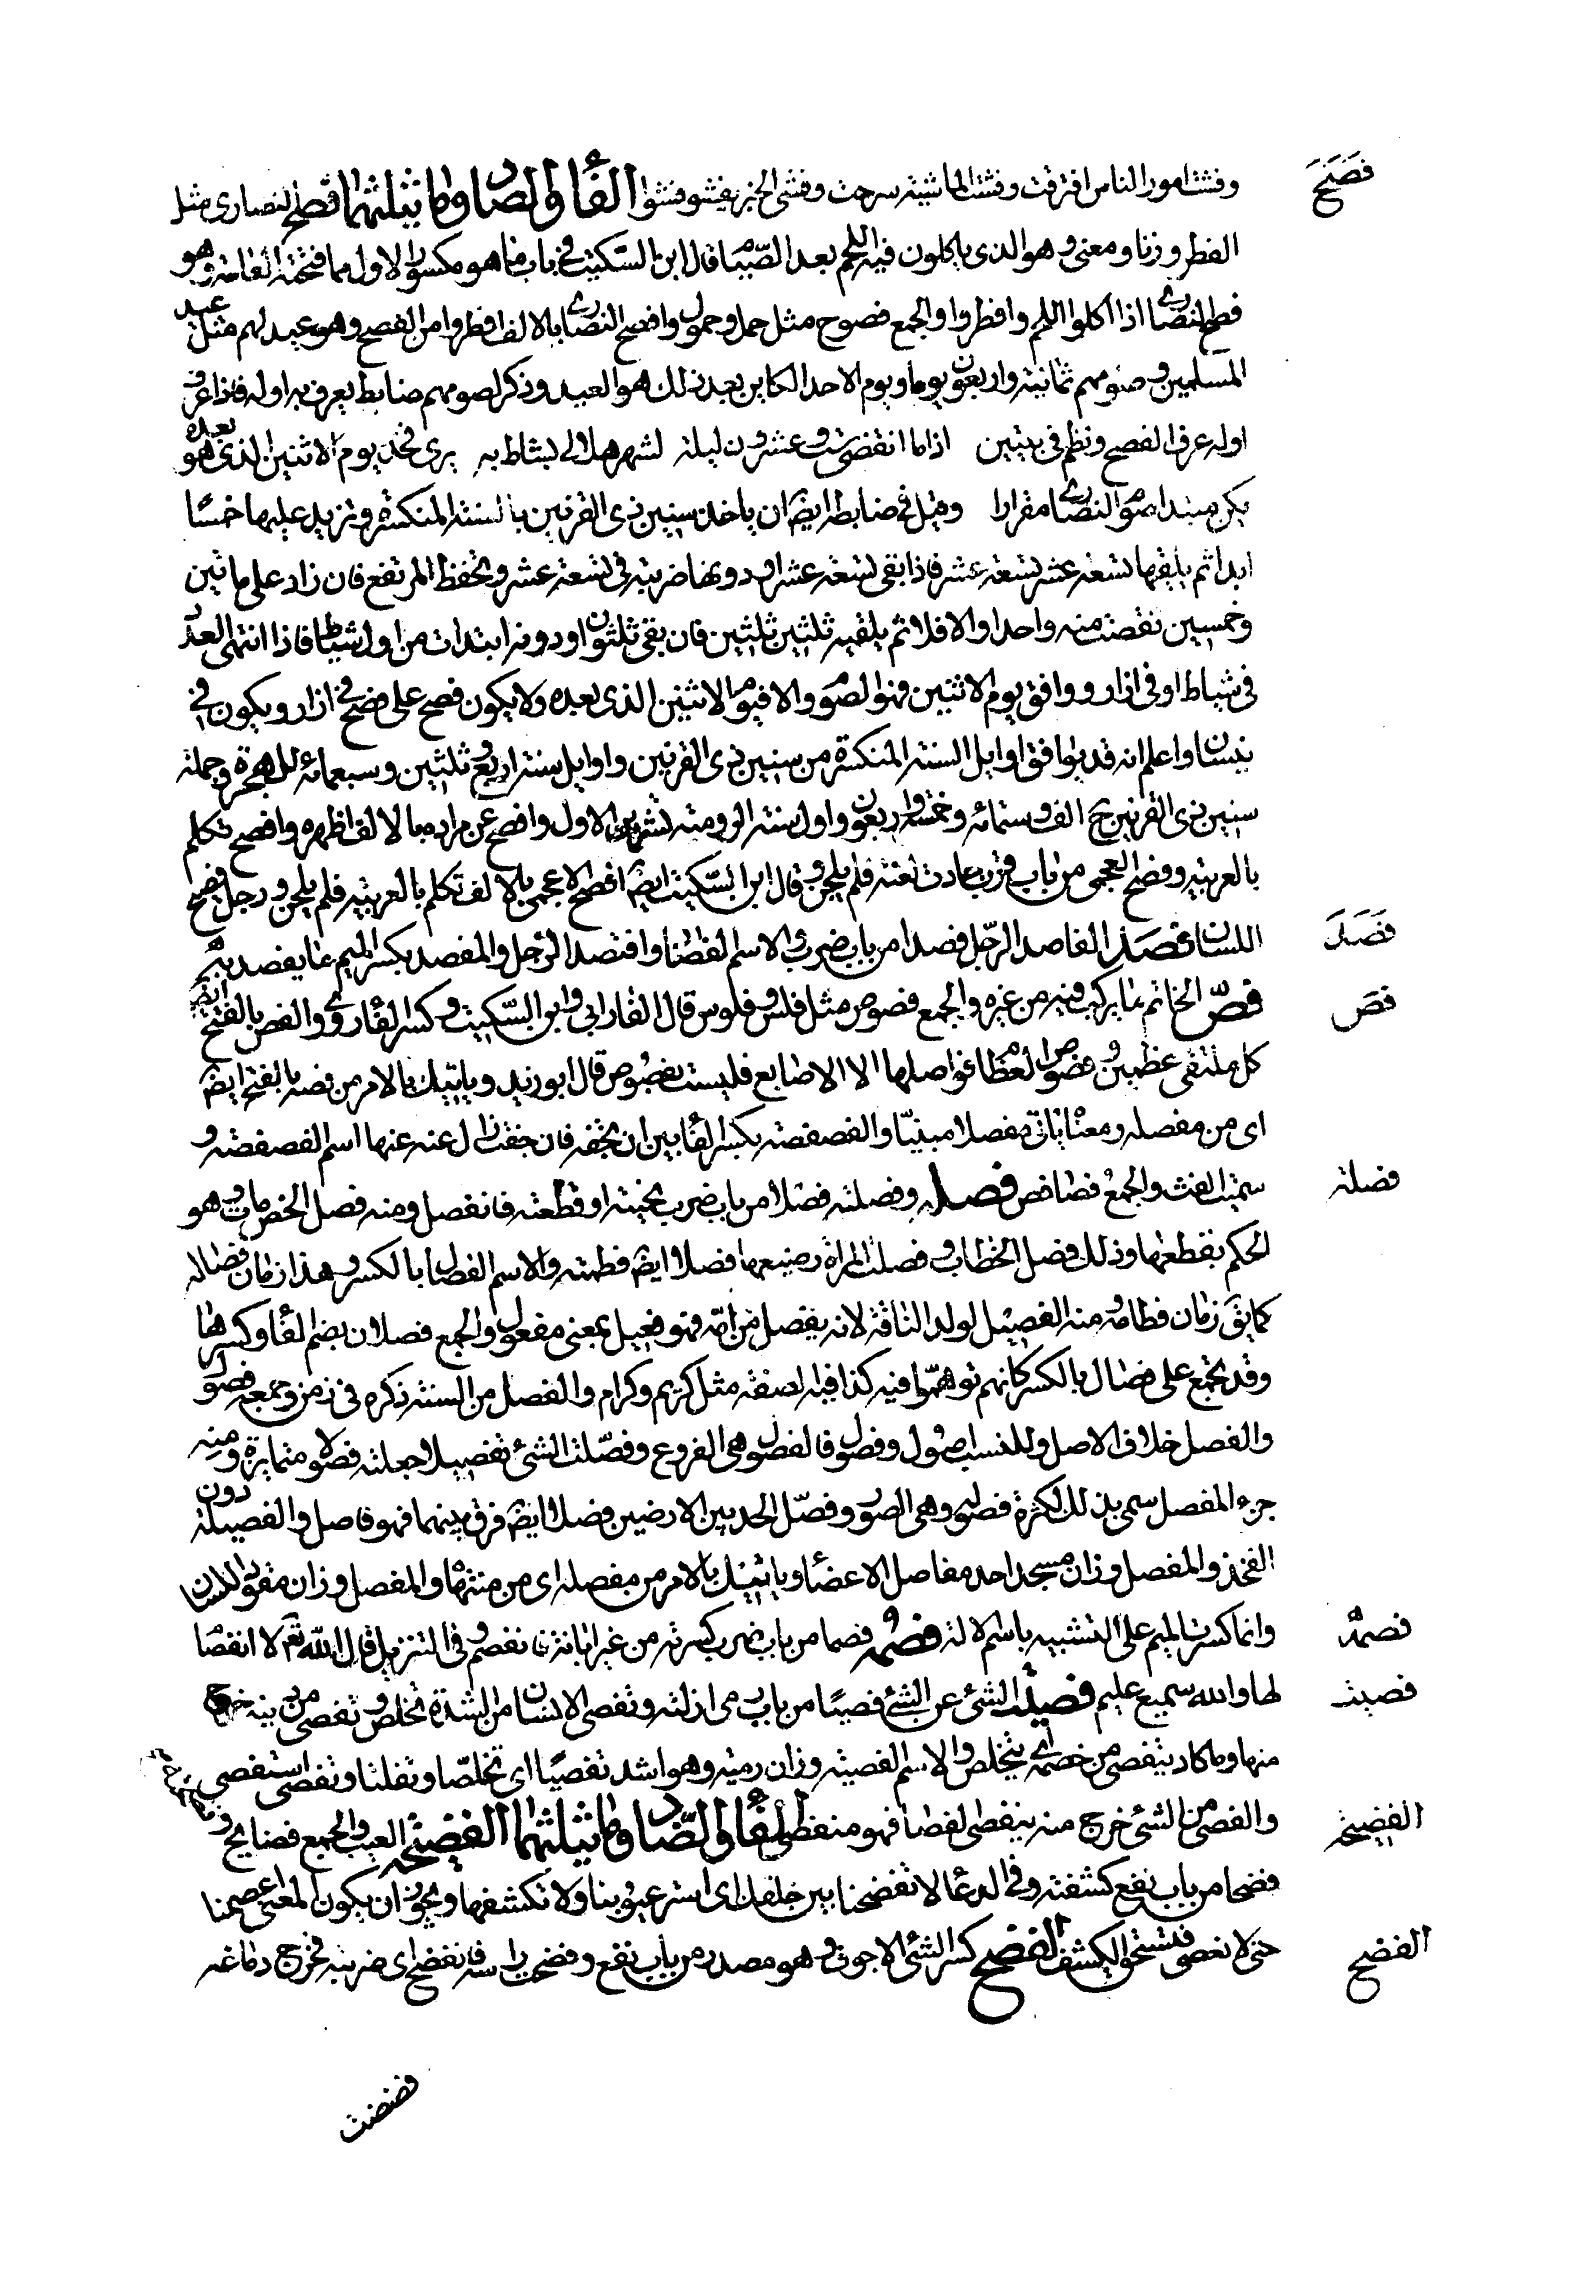 فصح
وفشت امور الناس افترقت وفشت الماشية سرحت وفشى الخبر يفشو فشوا الفاء والصاد وما يثلثهما فصح النصارى مثل
الفطر وزنا ومعنى وهو الذى ياكلون فيه اللحم بعد الصيام قال ابن السكيت فى باب ما هو مكسور الاول مما فتحته العامة وهو
فصح النصارى اذا اكلوا اللحم وافطروا والجمع فصوح مثل حمل وحمول وافصح النصارى بالالف افطروا من الفصح وهو عيد لهم مثل عيد
المسلمين وصومهم ثمانية واربعون يوما ويوم الاحد الكاين بعد ذلك هو العيد وذكر لصومهم ضابط يعرف به اوله فاذا عرف
اوله عرف الفصح ونظم فى بيتين اذا ما انقضى ست وعشرون ليلة لشهر هلالى لشباط به يرى فخذ يوم الاثنين الذى هو بعده
يكن مبتدا صوم النصارى مقررا وقيل فى ضابطه ايضا ان ياخذ سنين ذى القرنين بالسنة المنكسرة وتزيد عليها خمسا
ابدا ثم يلقيها تسعة عشر تسعة عشر فاذا بقى تسعة عشر او دونها ضربته فى تسعة عشر وتحفظ المرتفع فان زاد على مائتين
وخمسين نقصت منه واحدا والا فلا ثم يلقيه ثلثين ثلثين فان بقى ثلثون او دونه ابتدات من اول شباط فاذا انتهى العدد
فى شباط او فى اذار ووافق يوم الاثنين فهو الصوم والا فيوم الاثنين الذى بعده ولا يكون فصح على فصح فى اذار ويكون فى
نيسان واعلم انه قد يوافق اوايل السنة المنكسرة من سنين ذى القرنين واوايل سنة اربع وثلثين وسبعمائة للهجرة وجملة
سنين ذى القرنين ح الف وستمائة وخمسة واربعون واول سنة الرومية تشرين الاول وافصح عن مراده بالالف اظهره وافصح تكلم
بالعربية وفصح العجمى من باب قرب جادت لغته فلم يلحن وقال ابن السكيت ايضا افصح الاعجمى بالالف تكلم بالعربية فلم يلحن ورجل فصيح
فصد
اللسان فصد الفاصد الرجل فصدا من باب ضرب والاسم الفصاد وافتصد الرجل والمفصد بكسر الميم ما يفصد به
فص
فص الخاتم ما يركب فيه من غيره والجمع فصوص مثل فلس وفلوس قال الفارابى وابن السكيت وكسر الفاء ردى والفص بالفتح ايضا
كل ملتقى عظمين وفصوص العظام فواصلها الا الاصابع فليست بفصوص قال ابو زيد وياتيك بالامر من فصه بالفتح ايضا
اى من مفصله ومعناه ياتى مفصلا مبينا والفصفصة بكسر الفاء بين ان تجف فان جفت زال عنه عنها اسم الفصفصة و
فصلته
سميت القت والجمع فصافص فصلته وفصلته فصلا من باب ضرب نحيته او قطعته فانفصل ومنه فصل الخصومات وهو
الحكم بقطعها وذلك فصل الخطاب وفصلت المراة رضيعها فصلا ايضا فطمته والاسم الفصال بالكسر وهذا زمان فصاله
كما يق زمان فطامه ومنه الفصيل لولد الناقة لانه يفصل من امه فهو فعيل بمعنى مفعول والجمع فصلان بضم الفاء وكسرها
وقد يجمع على فصال بالكسر كانهم توهموا فيه الصفة مثل كريم وكرام والفصل من السنة ذكره فى زمن وجمعه فصول
والفصل خلاف الاصل وللنسب اصول وفصول فالفصول هى الفروع وفصلت الشئ تفصيلا جعلته فصولا متمايزة ومنه
جزء المفصل سمى بذلك لكثرة فصوله وهى السور وفصل الحد بين الارضين فصلا ايضا فرق بينهما فهو فاصل والفصيلة دون
الفخذ والمفصل وزان مسجد احد مفاصل الاعضاء وياتيك بالامر من مفصله اى من منتهاه والمفصل وزان مقود اللسان
فصمته
وانما كسرت الميم على التشبيه باسم الالة فصمته فصما من باب ضرب كسرته من غير ابانة فانفصم وفى التنزيل قال الله تع لا انفصام
فصيت
لها والله سميع عليم فصيت الشئ عن الشئ فصيا من باب رمى ازلته وتفصى الانسان من الشدة تخلص وتفصى من دينه خرج
منها وما كاد يتفصى من خصمه اى يتخلص والاسم الفصية وزان رمية وهو اشد تفصيا اى تخلصا وتفلتا وتفصى استقصى
الفضيحة
والفصى من الشئ خرج منه ينفصى انفصاء فهو منفصى الفاء والضاد وما يثلثهما الفضيحة العيب والجمع فضايح
فضحا من باب نفع كشفته وفى الدعاء لا تفضحنا بين خلقك اى استر عيوبنا ولا تكشفها ويجوز ان يكون المعنى اعصمنا
الفضح
حتى لا نعصى فنستحق الكشف الفضح كسر الشئ الاجوف وهو مصدر من باب نفع وفضحت راسه فانفضح اى ضربته فخرج دماغه
فضضت